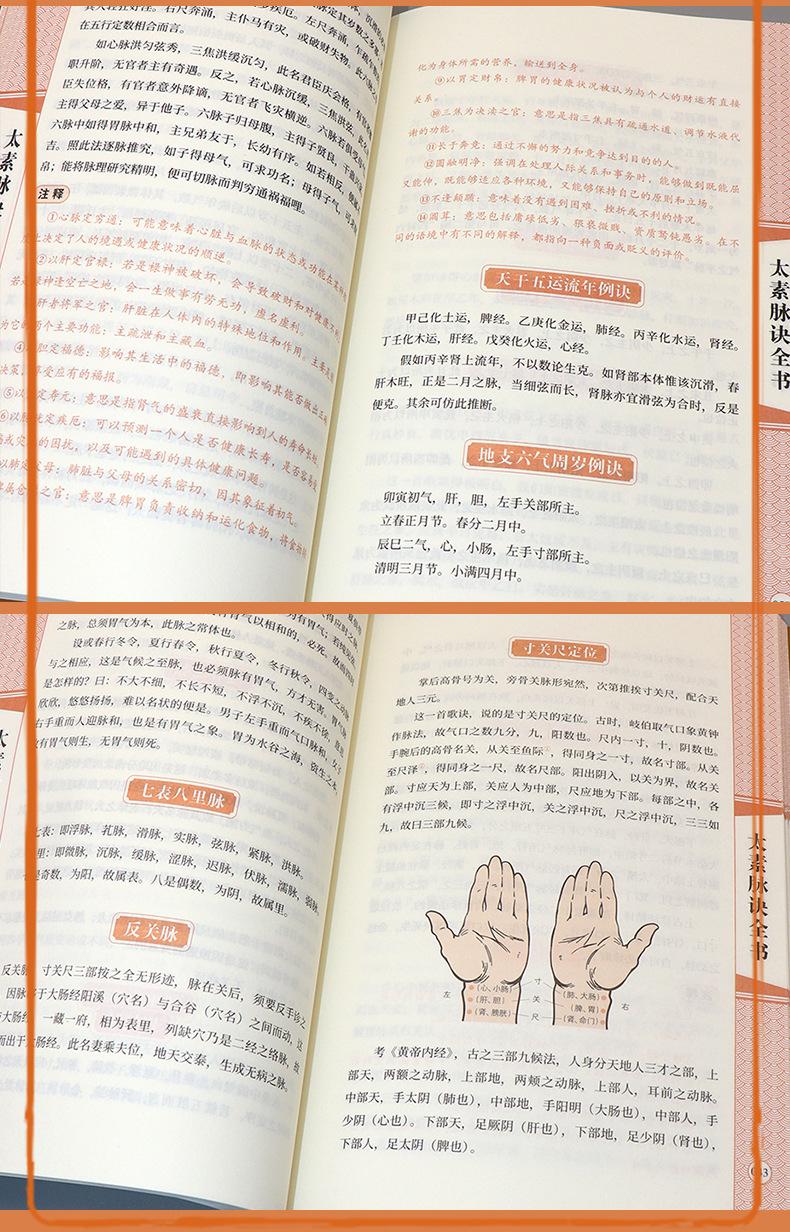 在五行定数相合而言。
如心脉洪匀弦秀，三焦洪缓沉匀，此名君臣庆会格，
职升阶，无官者主有奇遇。反之，若心脉沉缓，三焦洪弦，
臣失位格，有官者意外降谪，无官者飞灾横逆。
主得父母之爱，异于他子。六脉子归母腹，主得子贤良，
六脉中如得胃脉中和，主兄弟友于，长幼有序。如若相反，
吉。照此法逐脉推究，如子得母气，可求功名；母得子气，
帛；能将脉理研究精明，便可切脉而判穷通祸福哩。
注释
①心脉定穷通：可能意味着心脏与血脉的状态或功能在某种
决定了人的境遇或健康状况的顺逆。
②以肝定官禄：若是禄神被破坏，会导致破财和对健康不利
若是禄神逢空亡之地，会一生做事有劳无功，虚名虚利。
肝者将军之官：肝脏在人体内的特殊地位和作用。主要
两个主要功能：主疏泄和主藏血。
胆定福德：影响其生活中的福德，即影响其能否做出正确
享受应有的福报。
定寿元：意思是指肾气的盛衰直接影响到人的寿命长短。
定疾厄：可以预测一个人是否健康长寿，是否容易受
的困扰，以及可能遇到的具体健康问题。
以肺定父母：肺脏与父母的关系密切，因其象征着初气。
之官：意思是脾胃负责收纳和运化食物，将食物转
化为身体所需的营养，输送到全身。
⑨以胃定财帛：脾胃的健康状况被认为与个人的财运有直接
关系。
⑩三焦为决渎之官：意思是指三焦具有疏通水道、调节水液代
谢的功能。
⑪长于奔竞：通过不懈的努力和竞争达到目的的人。
⑫圆融明净：强调在处理人际关系和事务时，能够做到既能屈
又能伸，既能够适应各种环境，又能够保持自己的原则和立场。
⑬不逢颠踬：意味着没有遇到困难、挫折或不利的情况。
⑭阘茸：意思包括庸碌低劣、猥亵微贱、资质驽钝愚劣。在不
同的语境中有不同的解释，都指向一种负面或贬义的评价。
天干五运流年例诀
甲己化土运，脾经。乙庚化金运，肺经。丙辛化水运，肾经。
丁壬化木运，肝经。戊癸化火运，心经。
假如丙辛肾上流年，不以数论生克。如肾部本体惟该沉滑，春
肝木旺，正是二月之脉，当细弦而长，肾脉亦宜滑弦为合时，反是
便克。其余可仿此推断。
地支六气周岁例诀
卯寅初气，肝，胆，左手关部所主。
立春正月节。春分二月中。
辰巳二气，心，小肠，左手寸部所主。
清明三月节。小满四月中。
太素脉诀全书
之脉，总须胃气为本，此脉之常体也。
设或春行冬令，夏行春令，秋行夏令，冬行秋令，四变之动脉
与之相应，这是气候之至脉，也必须脉有胃气，方才无害。
是怎样的？曰：不大不细，不长不短，不浮不沉，不疾不徐，
欣欣，悠悠扬扬，难以名状的便是。男子左手重而气口脉和，女子
右手重而人迎脉和，也是有胃气之象。胃为水谷之海，资生之本，
故有胃气则生，无胃气则死。
七表八里脉
七表：即浮脉，芤脉，滑脉，实脉，弦脉，紧脉，洪脉。
里：即微脉，沉脉，缓脉，涩脉，迟脉，伏脉，濡脉，弱脉。
是奇数，为阳，故属表。八是偶数，为阴，故属里。
反关脉
反关脉，寸关尺三部按之全无形迹，脉在关后，须要反手诊之
因脉行于大肠经阳溪（穴名）与合谷（穴名）之间而动，这
大肠经。一藏一府，相为表里，列缺穴乃是二经之络脉，故
而出于大肠经。此名妻乘夫位，地天交泰，生成无病之脉。
寸关尺定位
掌后高骨号为关，旁骨关脉形宛然，次第推挨寸关尺，配合天
地人三元。
这一首歌诀，说的是寸关尺的定位。古时，岐伯取气口象黄钟
作脉法，故气口之数九分，九，阳数也。尺内一寸，十，阴数也。
手腕后的高骨名关，从关至鱼际，得同身之一寸，故名寸部。从关
至尺泽，得同身之一尺，故名尺部。阳出阴入，以关为界，故名关
部。寸应天为上部，关应人为中部，尺应地为下部。每部之中，各
有浮中沉三候，即寸之浮中沉，关之浮中沉，尺之浮中沉，三三如
九，故曰三部九候。
（心、小肠） 寸 （肺、大肠）
左 （肝、胆） 关 （脾、胃） 右
（肾、膀胱） 尺 （肾、命门）
考《黄帝内经》，古之三部九候法，人身分天地人三才之部，上
部天，两额之动脉，上部地，两颊之动脉，上部人，耳前之动脉。
中部天，手太阴（肺也），中部地，手阳明（大肠也），中部人，手
少阴（心也）。下部天，足厥阴（肝也），下部地，足少阴（肾也），
下部人，足太阴（脾也）。
太素脉诀全书